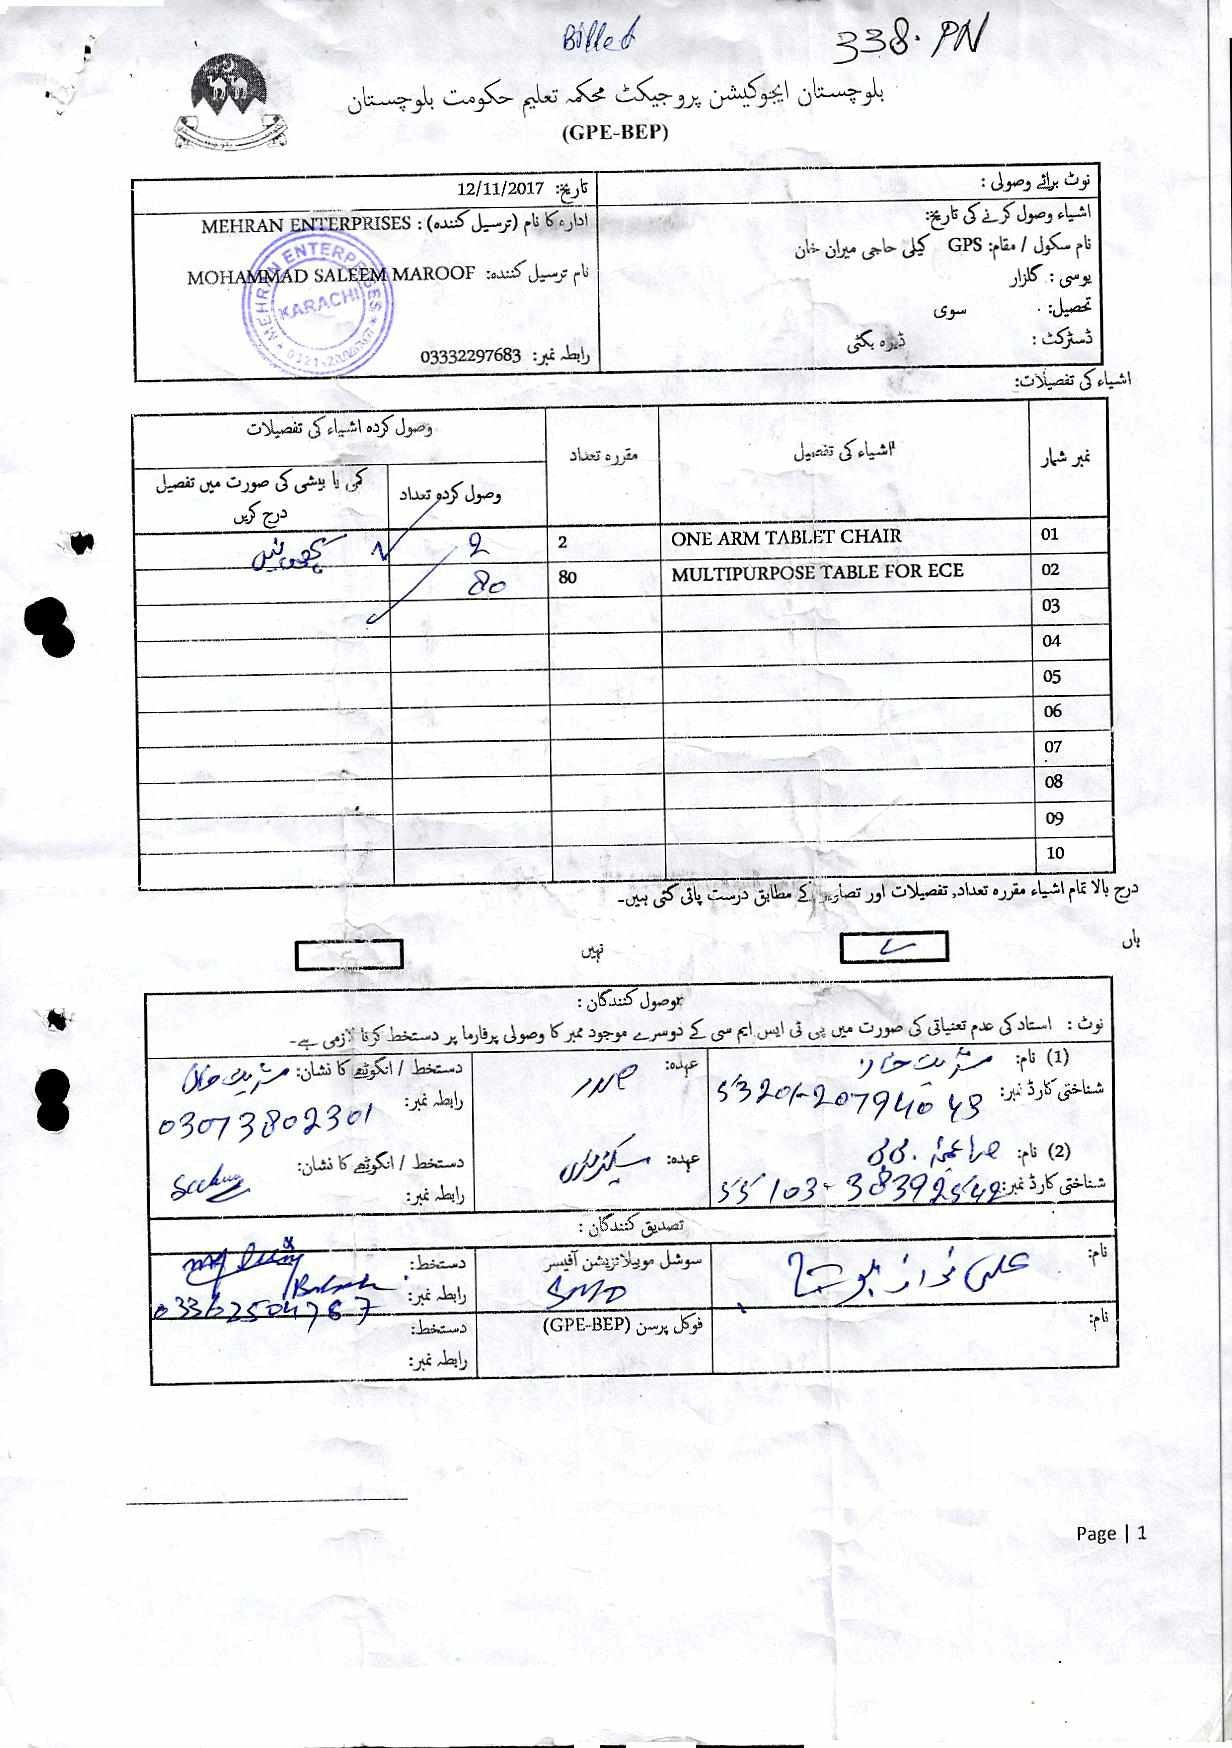 Billed
338. PN
بلوچستان ایجوکیشن پروجیکٹ محکمہ تعلیم حکومت بلوچستان
(GPE-BEP)
نوٹ برائے وصولی :
تاریخ: 12/11/2017
اشیاء وصول کرنے کی تاریخ:
ادارہ کا نام (ترسیل کنندہ) : MEHRAN ENTERPRISES
نام سکول / مقام: GPS کیلی حاجی میران خان
نام ترسیل کنندہ: MOHAMMAD SALEEM MAROOF
یوسی : گلزار
تحصیل: سوی
ڈسٹرکٹ : ڈیرہ بگٹی
رابطہ نمبر: 03332297683
MEHRAN ENTERPRISES
KARACHI
اشیاء کی تفصیلات:
نمبر شمار
اشیاء کی تفصیل
مقررہ تعداد
وصول کردہ اشیاء کی تفصیلات
وصول کردہ تعداد
کمی یا بیشی کی صورت میں تفصیل درج کریں
01 ONE ARM TABLET CHAIR 2 2 کچھ نہیں
02 MULTIPURPOSE TABLE FOR ECE 80 80
03
04
05
06
07
08
09
10
درج بالا تمام اشیاء مقررہ تعداد, تفصیلات اور تصاویر کے مطابق درست پائی گئی ہیں۔
ہاں
نہیں
وصول کنندگان :
نوٹ : استاد کی عدم تعنیاتی کی صورت میں پی ٹی ایس ایم سی کے دوسرے موجود ممبر کا وصولی پرفارما پر دستخط کرنا لازمی ہے۔
(1) نام:
عہدہ: صدر
دستخط / انگوٹھے کا نشان:
شناختی کارڈ نمبر: 53201-20794043
رابطہ نمبر: 03073802301
(2) نام:
عہدہ: سیکٹری
دستخط / انگوٹھے کا نشان:
شناختی کارڈ نمبر: 55103-38392542
رابطہ نمبر:
تصدیق کنندگان :
نام: علی نواز
سوشل موبیلائزیشن آفیسر
SMO
دستخط:
رابطہ نمبر: 03362504767
نام:
فوکل پرسن (GPE-BEP)
دستخط:
رابطہ نمبر:
Page | 1